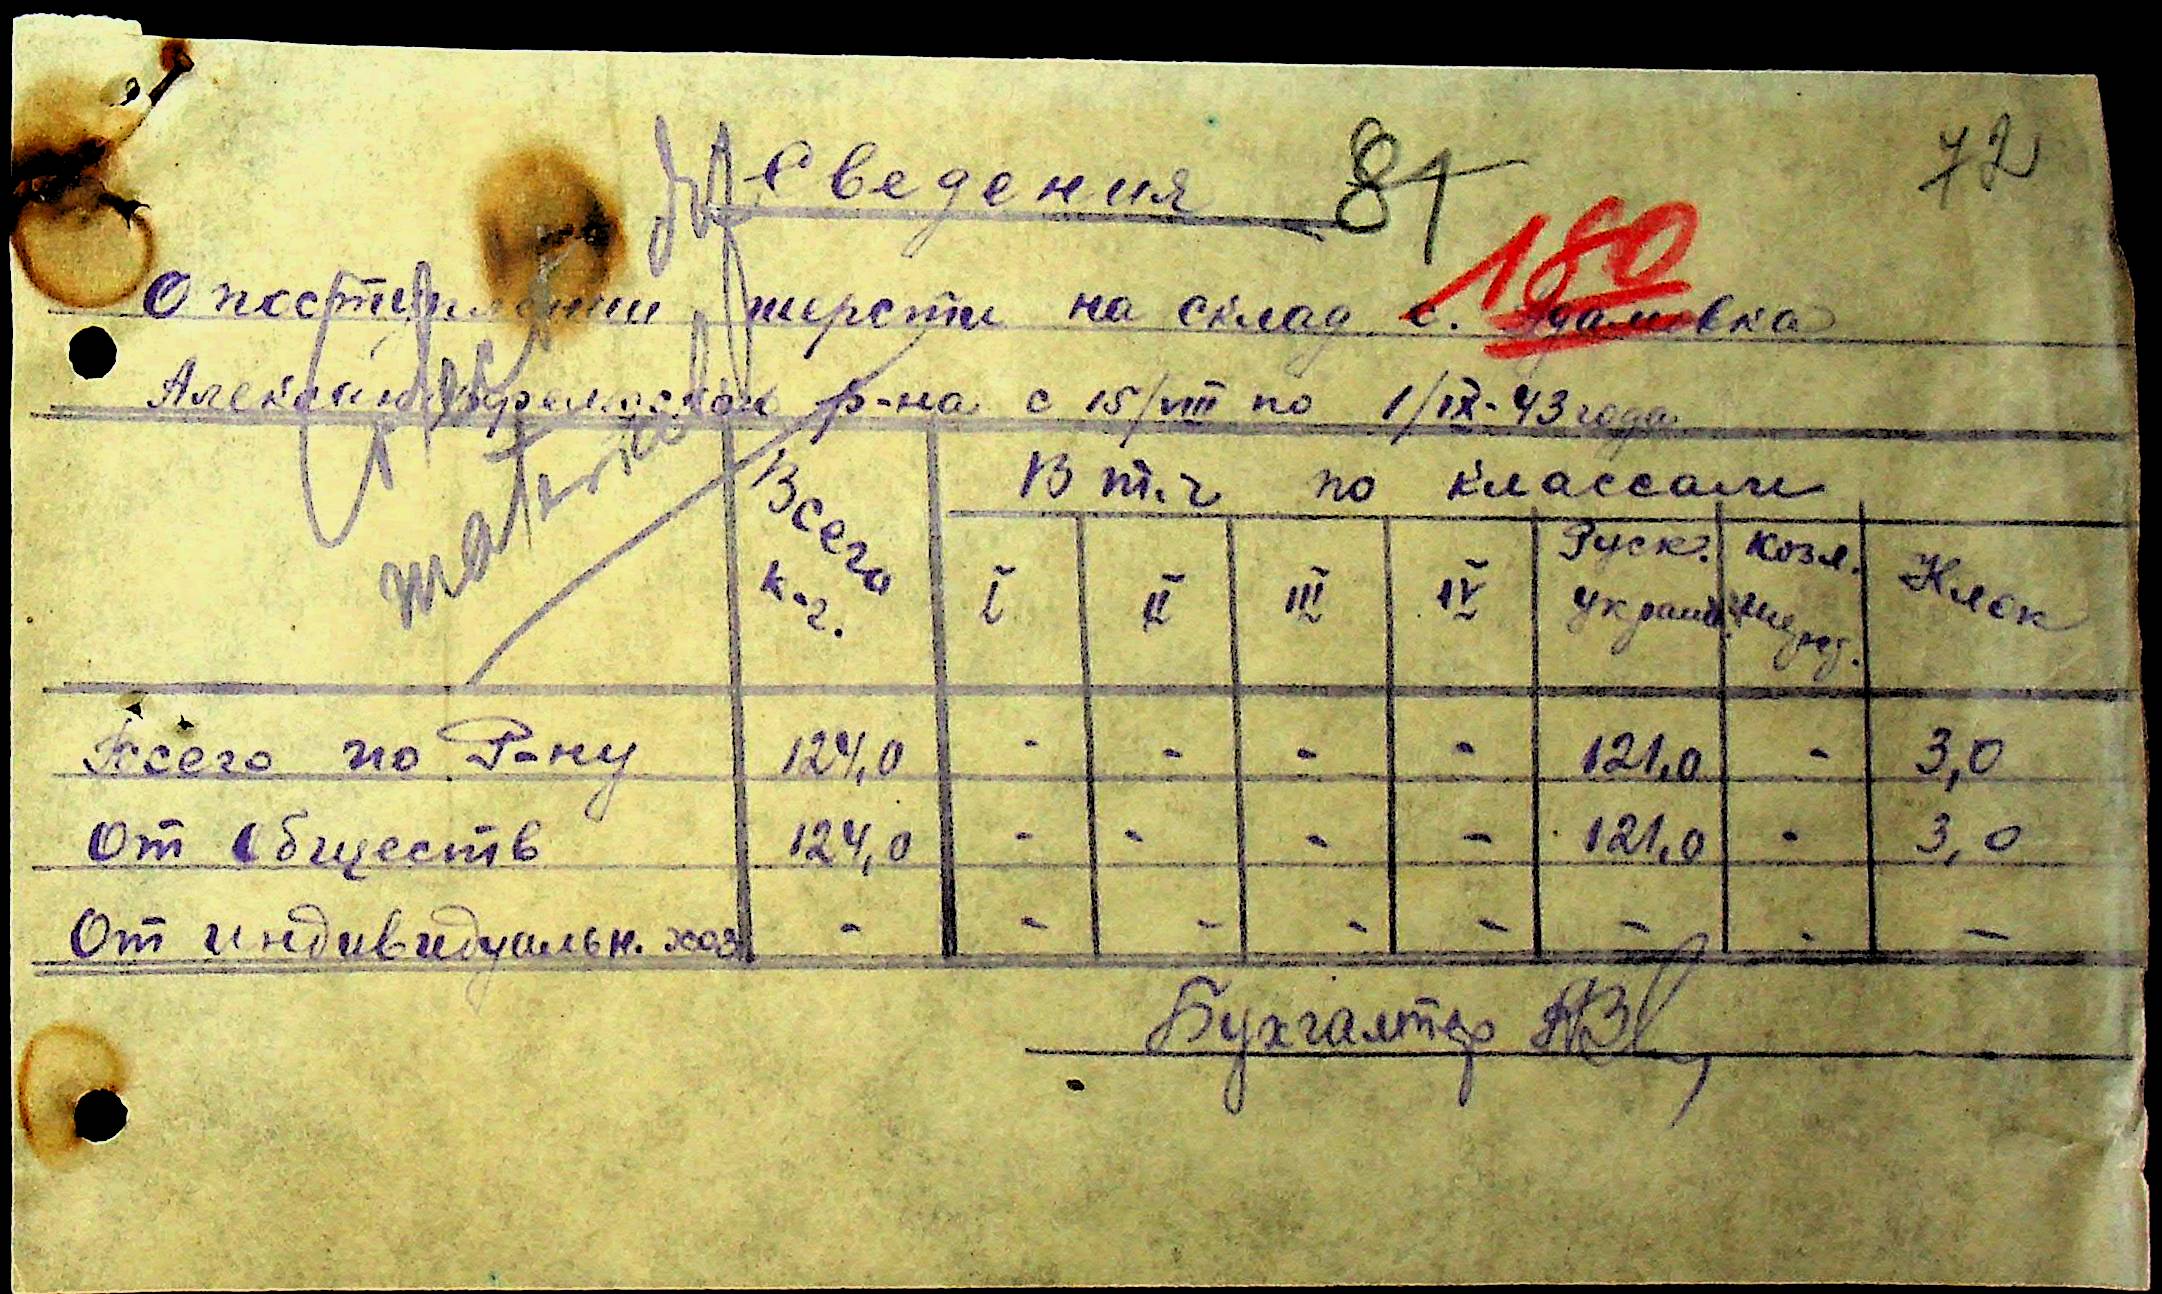 72
Сведения 81
180
О поступлении шерсти на склад с. Адамовка
р-на с 15/VIII по 1/IX-43 года
Всего к-г. В т.ч по классам
I II III IV Руск. украин. Козл. Клок
Всего по Р-ну 124,0 - - - - 121,0 - 3,0
От обществ 124,0 - - - - 121,0 - 3,0
От индивидуальн. хоз. - - - - - - - -
Бухгалтер